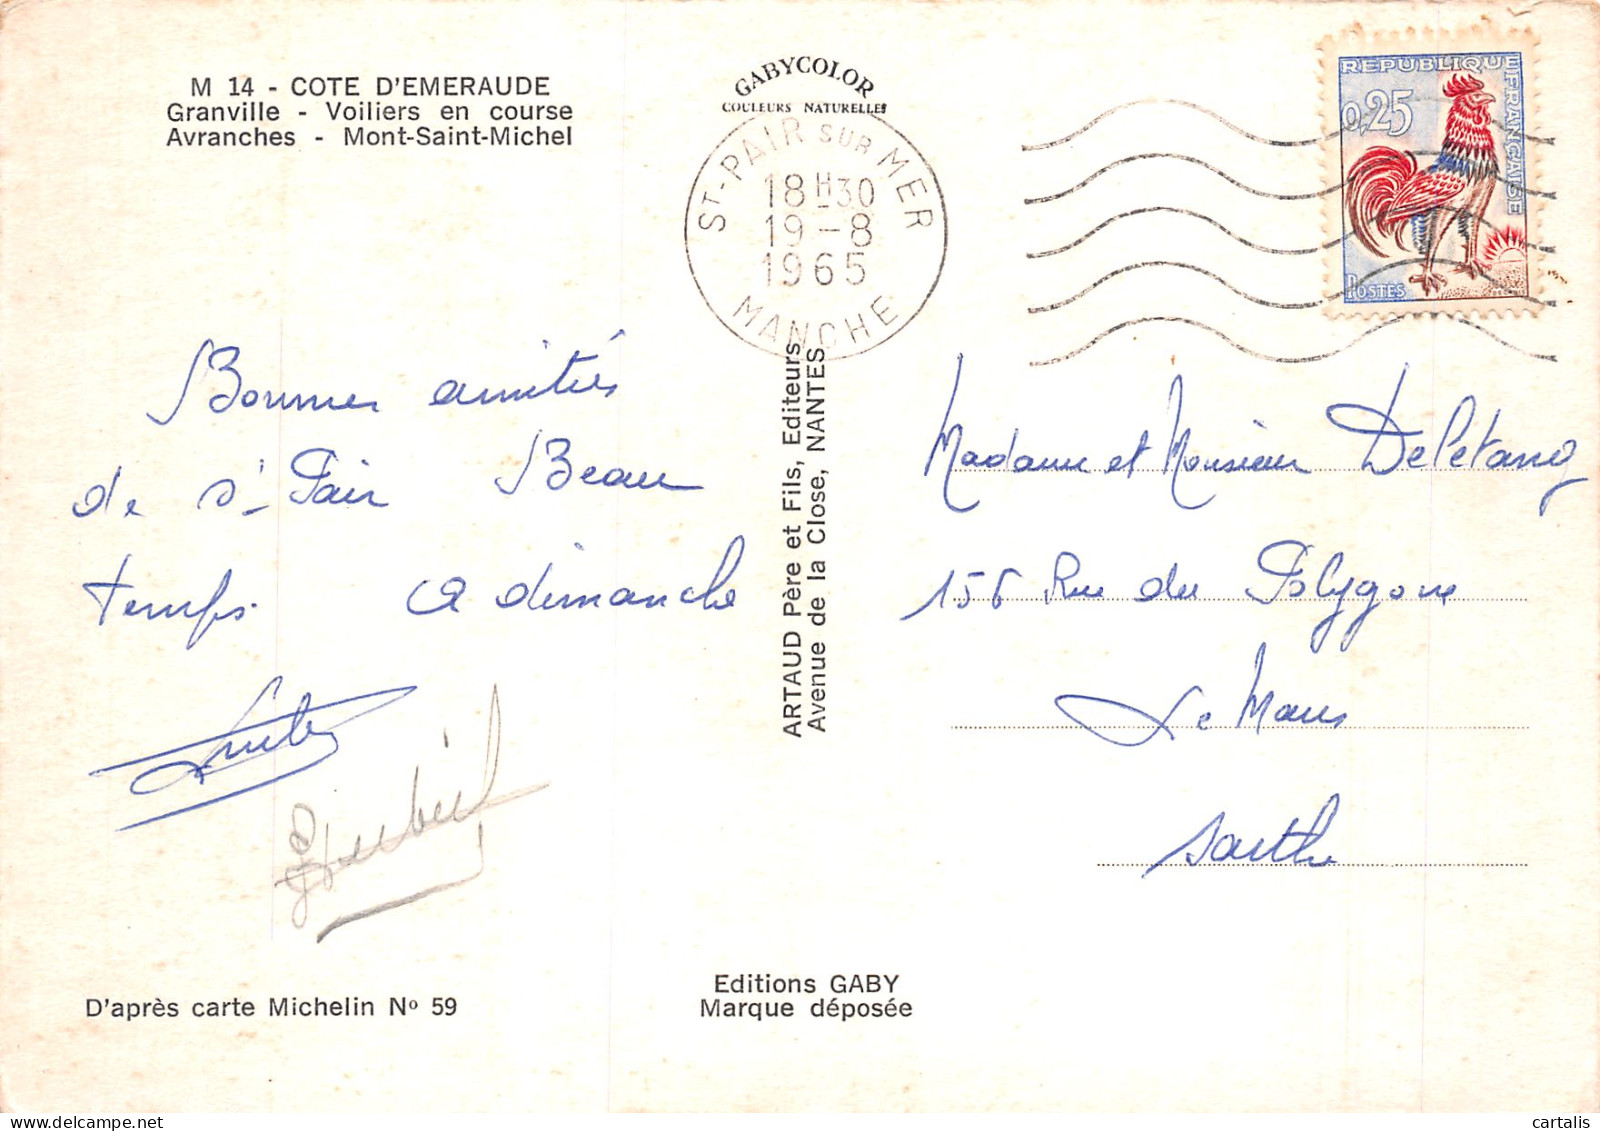 M 14 - COTE D'EMERAUDE
Granville - Voiliers en course
Avranches - Mont-Saint-Michel
GABYCOLOR
COULEURS NATURELLES
ST-PAIR SUR MER
18H30
19-8
1965
MANCHE
REPUBLIQUE FRANÇAISE
0,25
POSTES
Bonnes amitiés
de St Pair Beau
temps. A dimanche
ARTAUD Père et Fils, Editeurs
Avenue de la Close, NANTES
Madame et Monsieur Deletang
156 Rue du Polygone
Le Mans
Sarthe
D'après carte Michelin No 59
Editions GABY
Marque déposée
cartalis